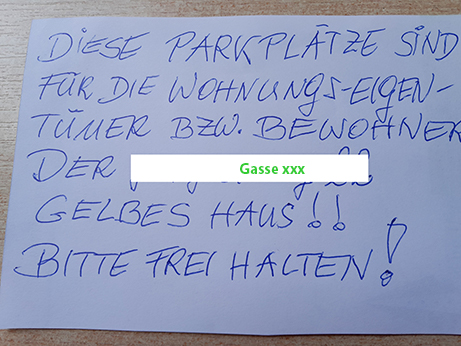 DIESE PARKPLÄTZE SIND
FÜR DIE WOHNUNGS-EIGEN-
TÜMER BZW. BEWOHNER
DER Gasse xxx
GELBES HAUS!!
BITTE FREI HALTEN!